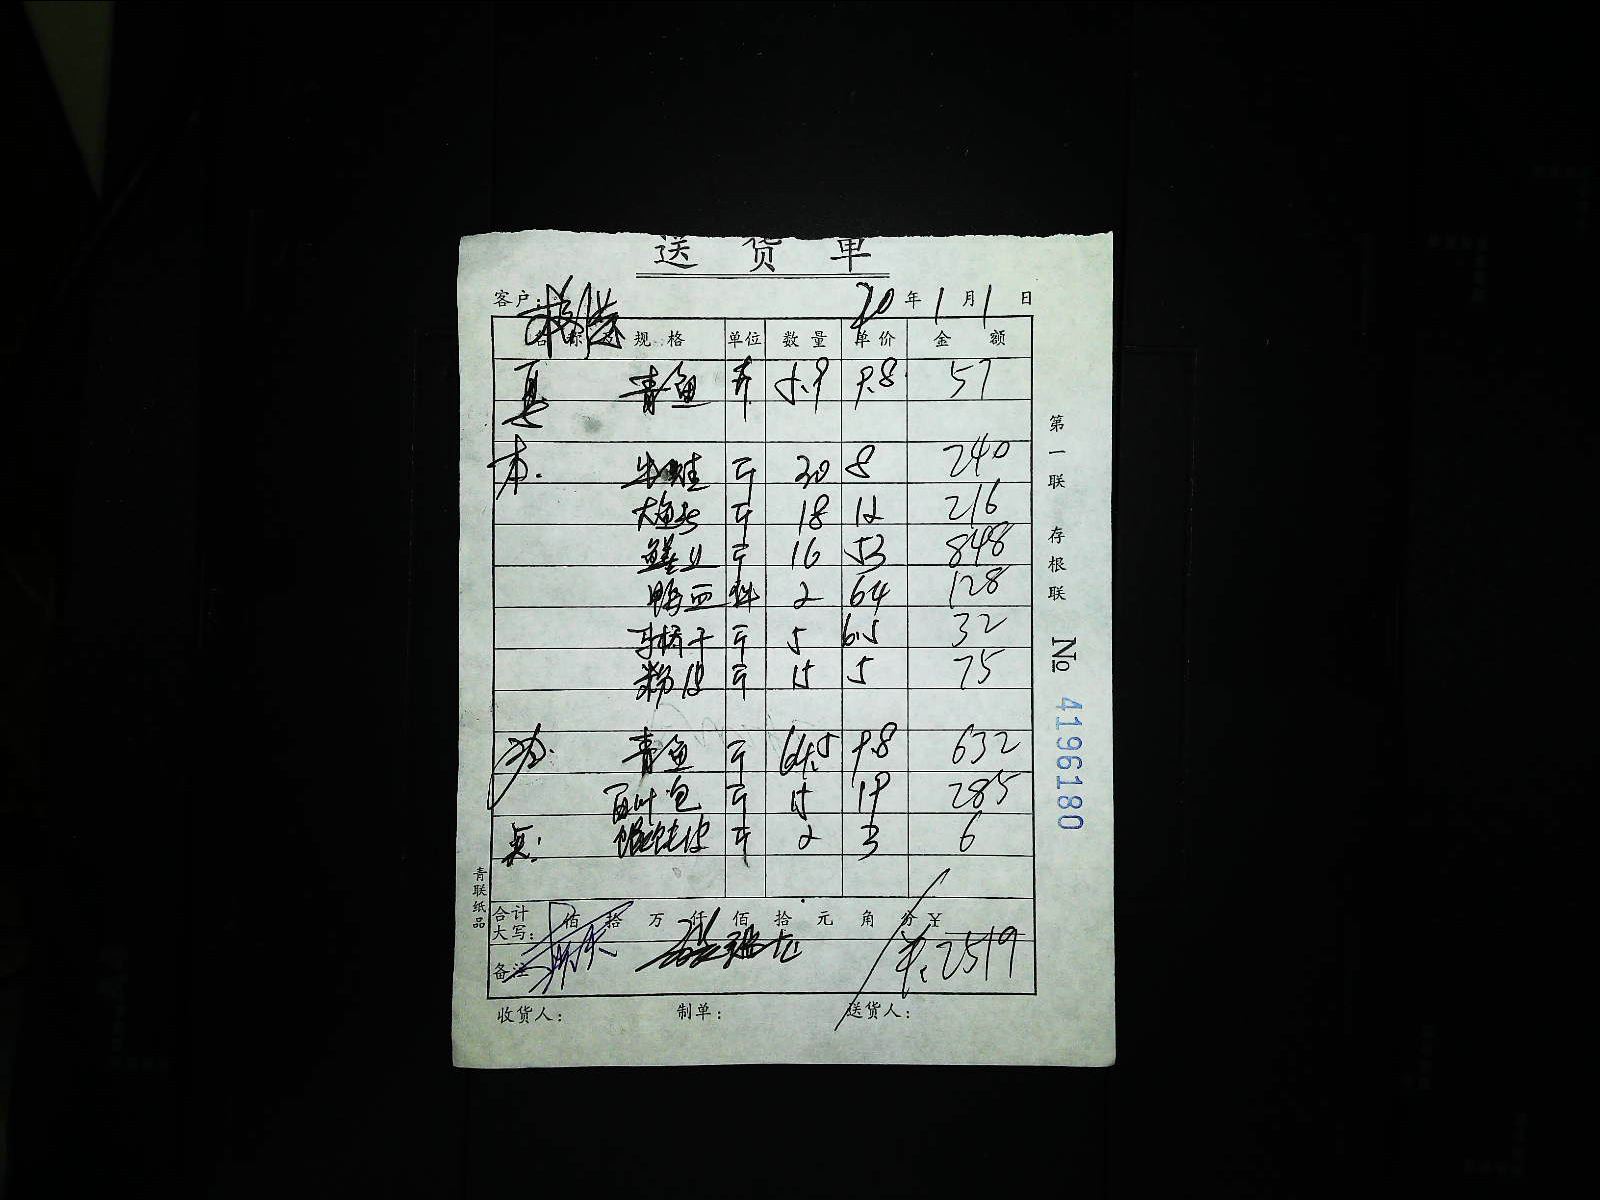 送 货 单
客户:
20年1月1日
名称及规格 单位 数量 单价 金额
青鱼 斤 5.9 9.8 57
本. 牛蛙 斤 30 8 240
大鱼头 斤 18 12 216
鳝丝 斤 16 53 848
鸭血 2 64 128
马桥干 斤 5 6.5 32
粉皮 斤 15 5 75
青鱼 斤 64.5 9.8 632
百叶包 斤 15 19 285
馄饨皮 斤 2 3 6
合计大写: 佰 拾 万 仟 佰 拾 元 角 分 ¥
备注 ¥:2519
收货人: 制单: 送货人:
第一联 存根联
№ 4196180
青联纸品